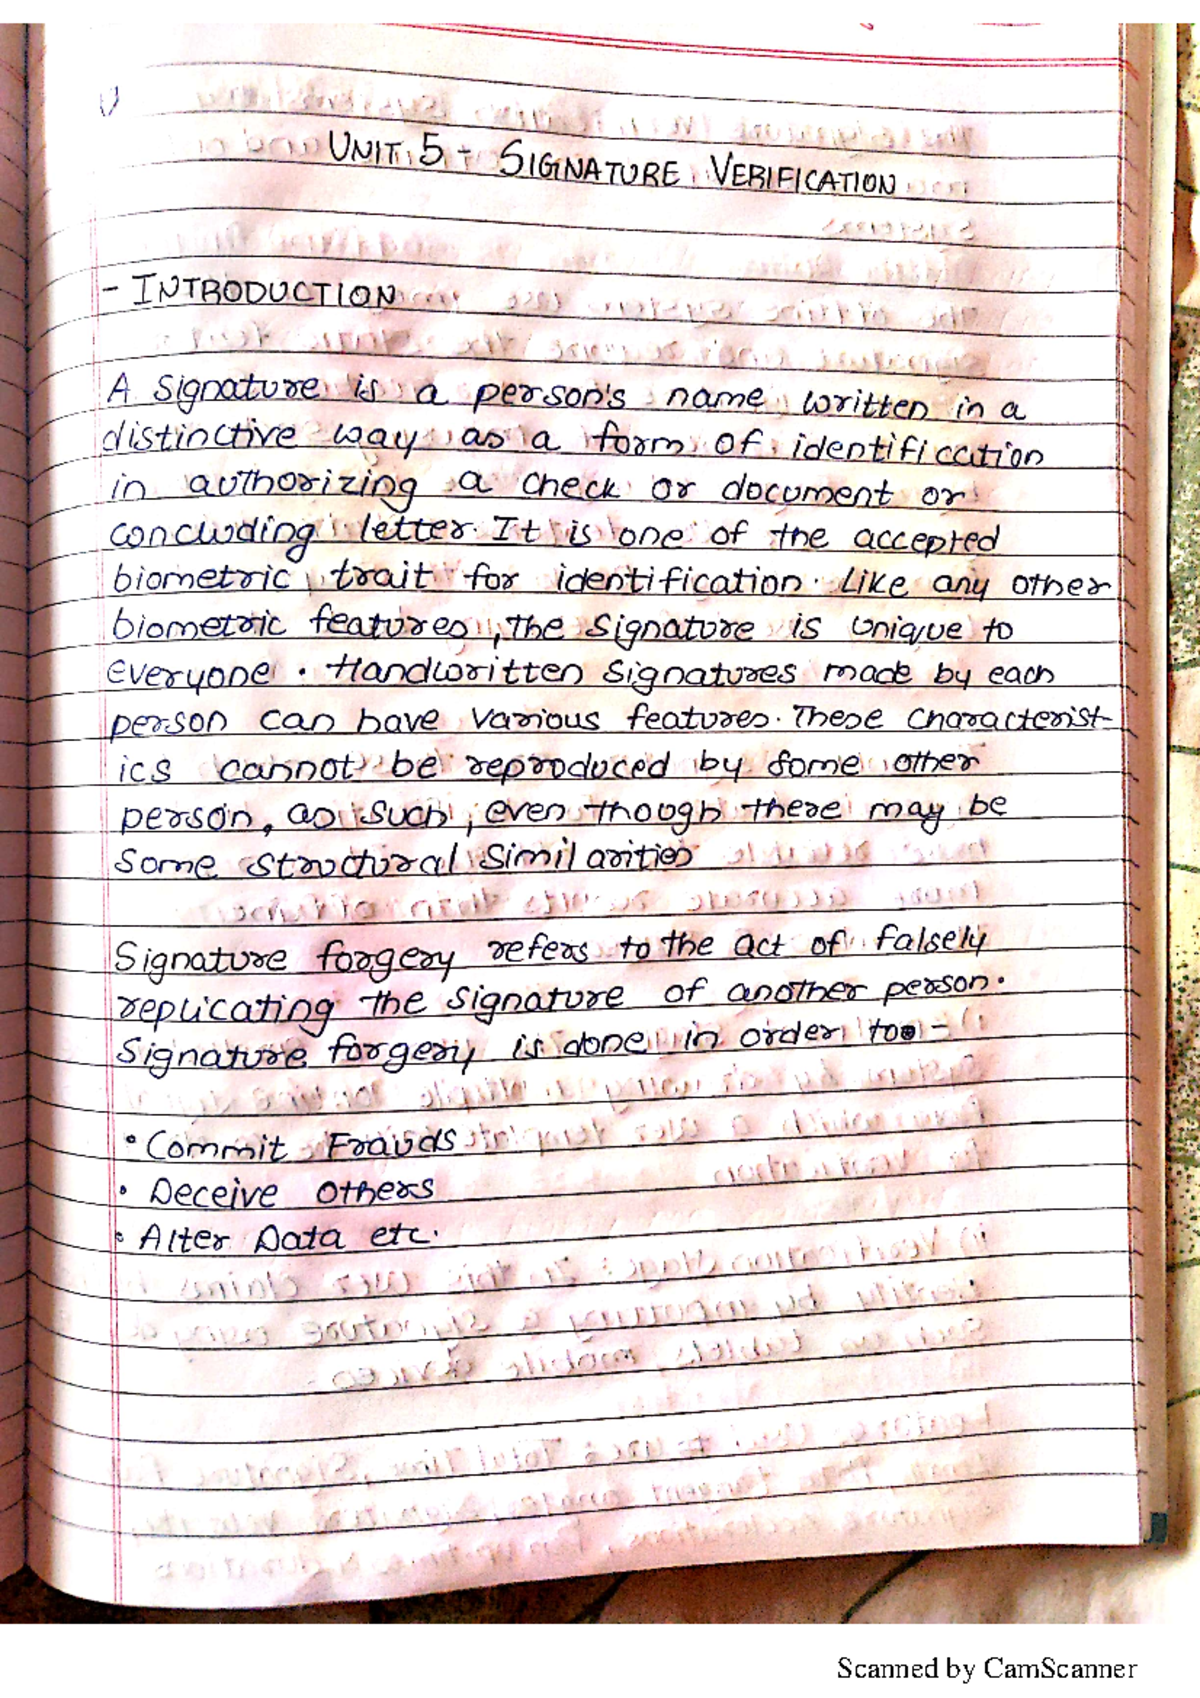 UNIT 5 - SIGNATURE VERIFICATION
- INTRODUCTION
A Signature is a person's name written in a
distinctive way as a form of identification
in authorizing a check or document or
concluding letter. It is one of the accepted
biometric trait for identification. Like any other
biometric features, the signature is unique to
everyone. Handwritten Signatures made by each
person can have various features. These characterist-
ics cannot be reproduced by some other
person, as such, even though there may be
some structural similarities
Signature forgery refers to the act of falsely
replicating the signature of another person.
Signature forgery is done in order to -
• Commit Frauds
• Deceive others
• Alter Data etc.
Scanned by CamScanner